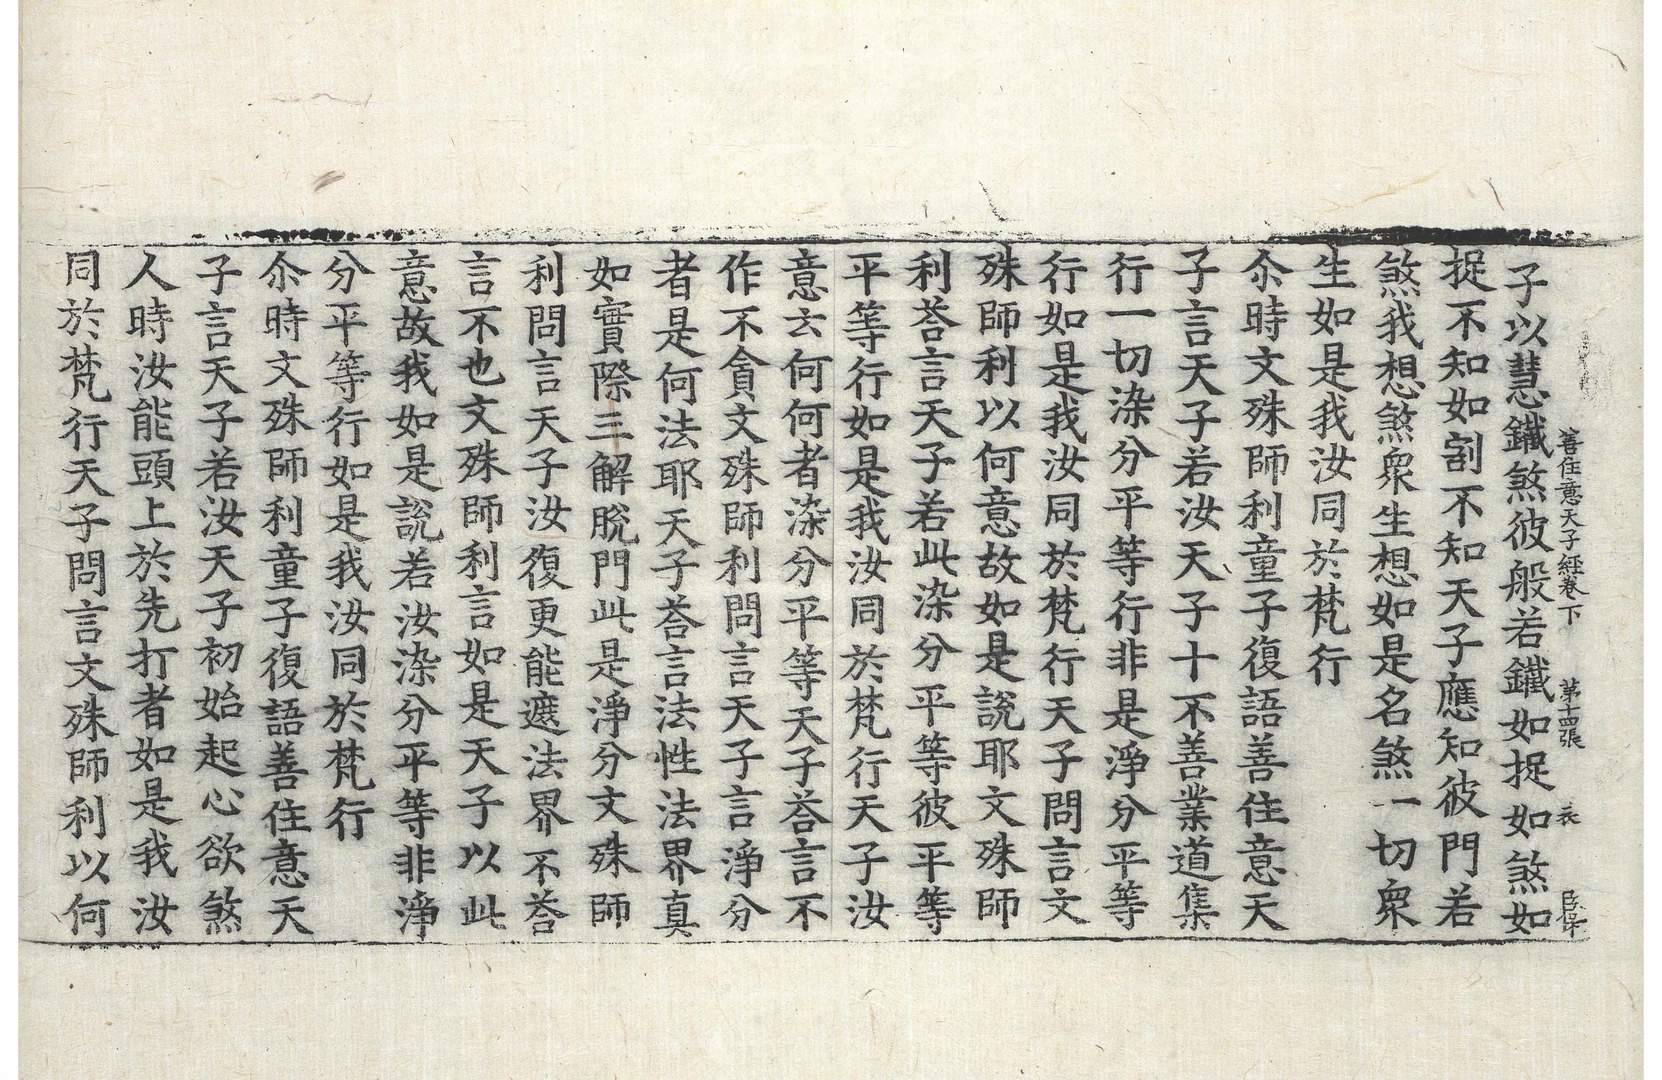 善住意天子經卷下 第十四張 表
子以慧鐵煞彼般若鐵如捉如煞如
捉不知如割不知天子應知彼門若
煞我想煞衆生想如是名煞一切衆
生如是我汝同於梵行
尒時文殊師利童子復語善住意天
子言天子若汝天子十不善業道集
行一切染分平等行非是淨分平等
行如是我汝同於梵行天子問言文
殊師利以何意故如是說耶文殊師
利荅言天子若此染分平等彼平等
平等行如是我汝同於梵行天子汝
意云何何者染分平等天子荅言不
作不貪文殊師利問言天子言淨分
者是何法耶天子荅言法性法界真
如實際三解脫門此是淨分文殊師
利問言天子汝復更能遮法界不荅
言不也文殊師利言如是天子以此
意故我如是說若汝染分平等非淨
分平等行如是我汝同於梵行
尒時文殊師利童子復語善住意天
子言天子若汝天子初始起心欲煞
人時汝能頭上於先打者如是我汝
同於梵行天子問言文殊師利以何